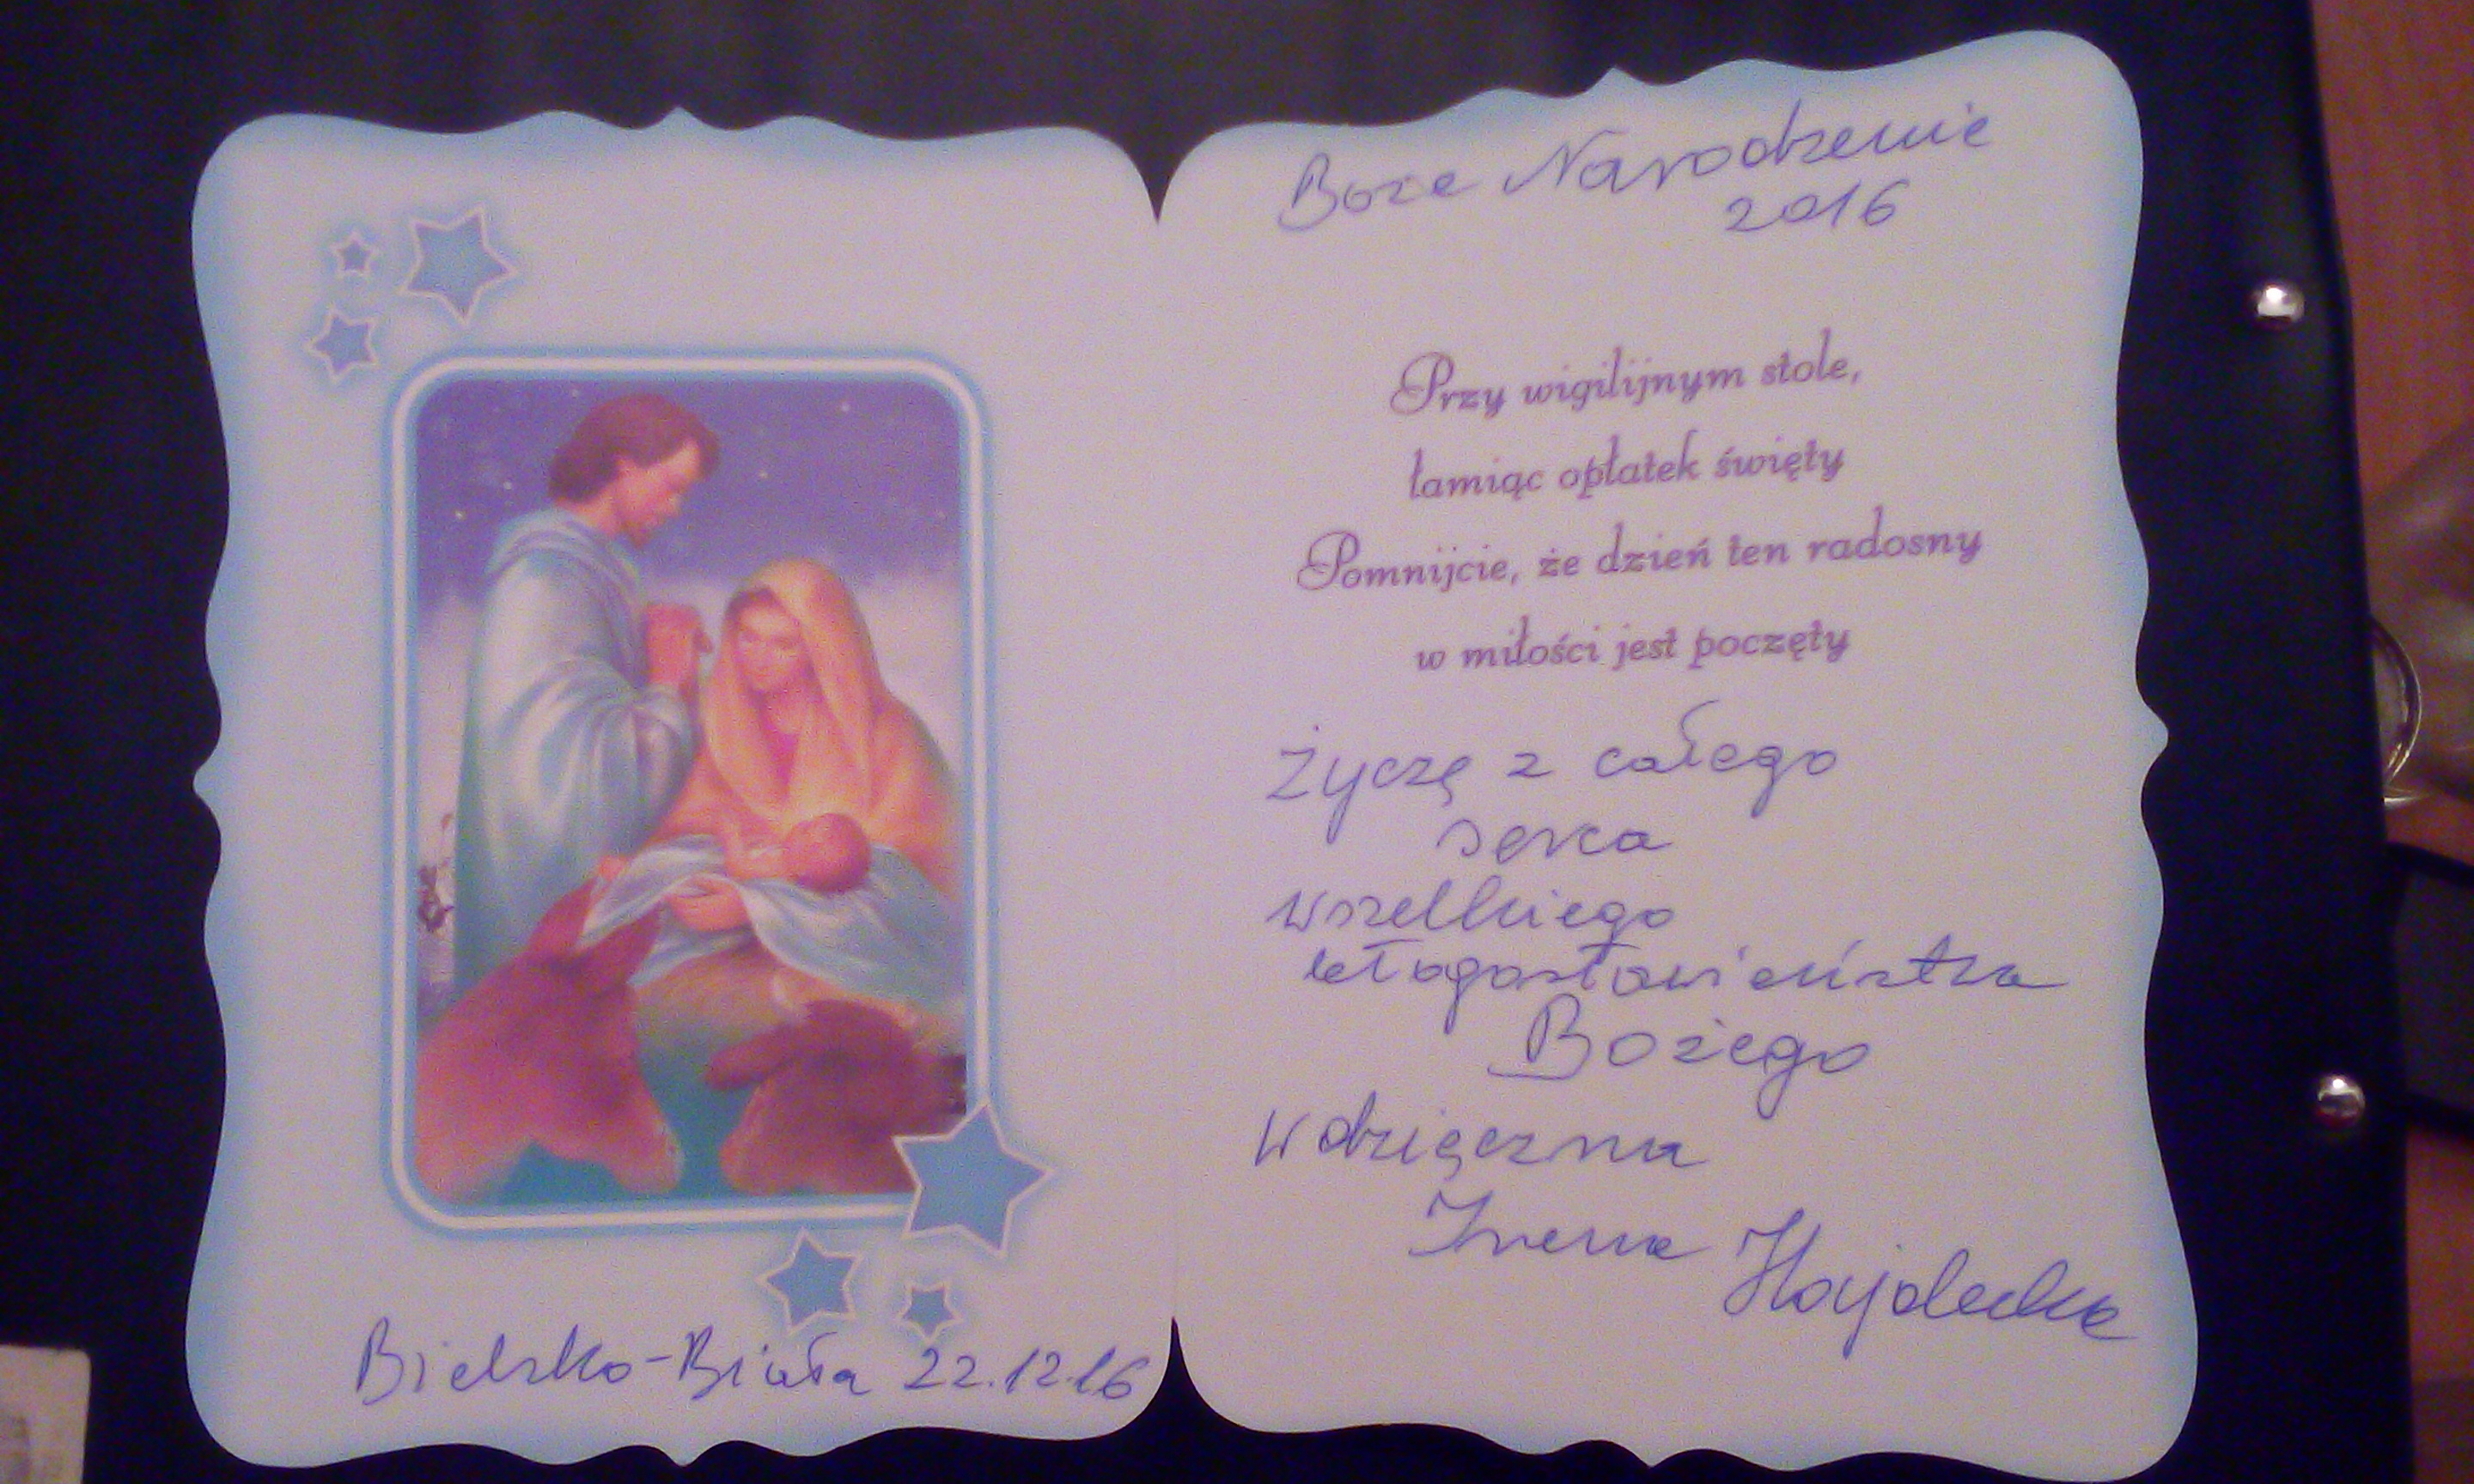 Boże Narodzenie
2016
Przy wigilijnym stole,
łamiąc opłatek święty
Pomnijcie, że dzień ten radosny
w miłości jest poczęty
Życzę z całego
serca
wszelkiego
błogosławieństwa
Bożego
wdzięczna
Irena
Bielsko-Biała 22.12.16